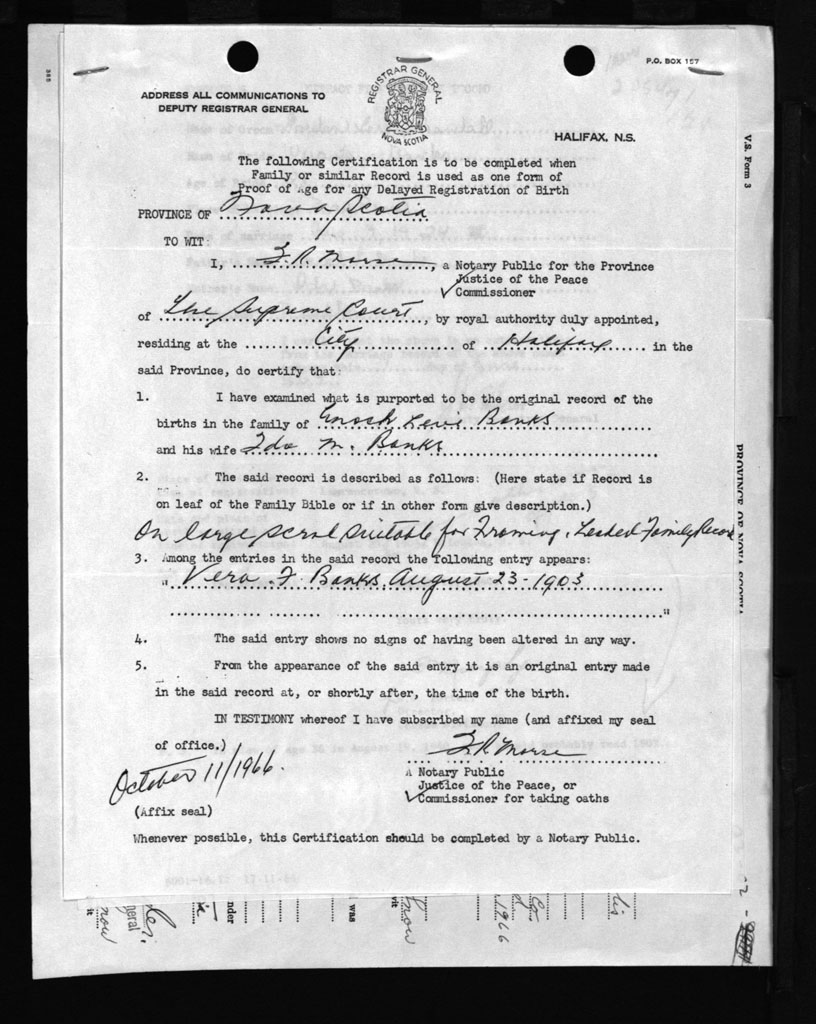 P.O. BOX 157
REGISTRAR GENERAL
NOVA SCOTIA
ADDRESS ALL COMMUNICATIONS TO
DEPUTY REGISTRAR GENERAL
HALIFAX, N.S.
V.S. Form 3
The following Certification is to be completed when
Family or similar Record is used as one form of
Proof of Age for any Delayed Registration of Birth
PROVINCE OF Nova Scotia
TO WIT:
I, F. R. Morse, a Notary Public for the Province
Justice of the Peace
✓ Commissioner
of The Supreme Court, by royal authority duly appointed,
residing at the City of Halifax in the
said Province, do certify that:
1. I have examined what is purported to be the original record of the
births in the family of Enoch Lewis Banks
and his wife Ida M. Banks
2. The said record is described as follows: (Here state if Record is
on leaf of the Family Bible or if in other form give description.)
On large scrol suitable for Framing, Family Record
PROVINCE OF NOVA SCOTIA
3. Among the entries in the said record the following entry appears:
" Vera F. Banks, August 23 - 1903
"
4. The said entry shows no signs of having been altered in any way.
5. From the appearance of the said entry it is an original entry made
in the said record at, or shortly after, the time of the birth.
IN TESTIMONY whereof I have subscribed my name (and affixed my seal
of office.)
F. R. Morse
October 11/1966.
A Notary Public
Justice of the Peace, or
✓ Commissioner for taking oaths
(Affix seal)
Whenever possible, this Certification should be completed by a Notary Public.
now
vit
eneral
nder
was
now
vit
1966
- 2 -